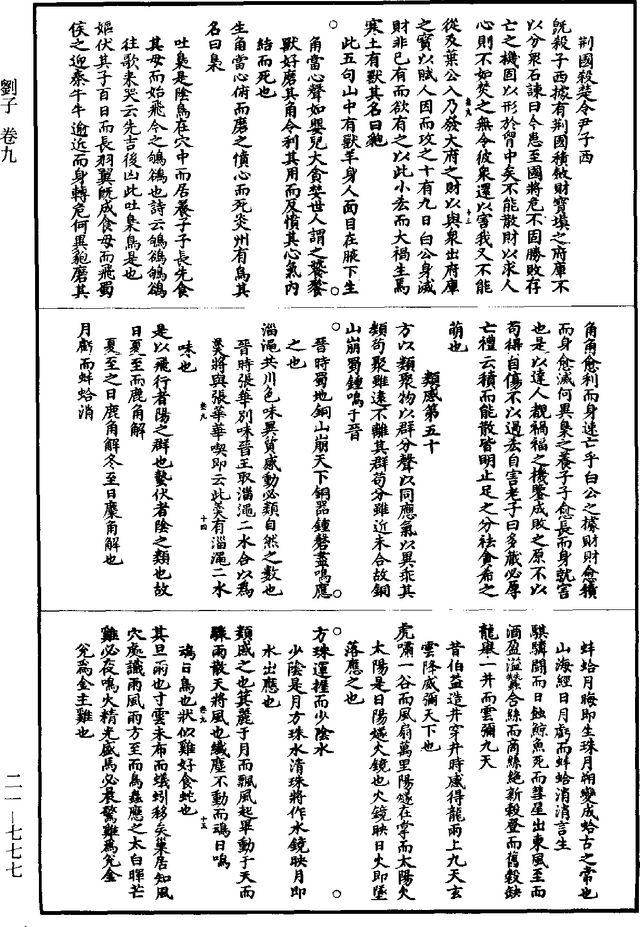 劉子 卷九
荆國殺楚令尹子西
旣殺子西據有荆國積斂財寳塡之府庫不
以分衆石諌曰今患至國將危不固勝敗存
亡之機固以形於胷中矣不能散財以求人
心則不如焚之無令彼衆還以害我又不能
從及葉公入乃發大府之財以與衆出府庫
之寳以賦人因而攻之十有九日白公身滅
財非已有而欲有之以此小𠫤而大禍生焉
寒土有獸其名曰㹶
此五句山中有獸羊身人面目在腋下生
角當心聲如嬰兒大貪婪世人謂之饕餮
獸好磨其角令利其用而反憤其心氣内
結而死也
生角當心俯而磨之憤心而死炎州有鳥其
名曰梟
吐梟是陰鳥在穴中而居養子子長先食
其母而始飛今之鵂鶹也詩云鴟鴞鴟鴞
往歌來哭云先吉後凶此吐梟鳥是也
嫗伏其子百日而長羽翼旣成食母而飛蜀
侯之迎秦牛牛逾近而身轉危何異㹶磨其
角角愈利而身速亡乎白公之據財財愈積
而身愈滅何異梟之養子子愈長而身就害
也是以達人覩禍福之機鑒成敗之原不以
苟得自傷不以過𠫤自害老子曰多藏必厚
亡禮云積而能散皆明止足之分祛貪吝之
萌也
類感第五十
方以類聚物以群分聲以同應氣以異乖其
類苟聚雖遠不離其群苟分雖近未合故銅
山崩蜀鍾鳴于晉
晉時蜀地銅山崩天下銅器鍾磬盡鳴應
之也
淄澠共川色味異質感動必類自然之數也
晉時張華別味晉王取淄澠二水合以爲
羮將與張華華喫即云此羮有淄澠二水
味也
是以飛行者陽之群也蟄伏者陰之類也故
日夏至而鹿角解
夏至之日鹿角解冬至日麋角解也
月虧而蚌蛤消
蚌蛤月晦即生珠月朔變成蛤古之常也
山海經曰月虧而蚌蛤消消言生
騏驎鬭而日蝕鯨魚死而彗星出東風至而
酒盈溢蠶合絲而商絲絶新穀登而舊穀缺
龍舉一井而雲彌九天
昔伯益造井穿井時感得龍雨上九天玄
雲降感彌天下也
虎嘯一谷而風扇萬里陽燧在掌而太陽火
太陽是日陽燧火鏡也火鏡映日火即墜
落應之也
方珠運握而少陰水
少陰是月方珠水清珠將作水鏡映月即
水出應也
類感之也箕麗于月而飄風起畢動于天而
驟雨散天將風也纎塵不動而䳁日鳴
䳁日鳥也狀似雞好食蛇也
其旦雨也寸雲未布而蟻蚓移矣巢居知風
穴處識雨風雨方至而鳥蟲應之太白暉芒
雞必夜鳴火精光盛馬必晨驚雞爲兊金
兊爲金主雞也
二一—七七七